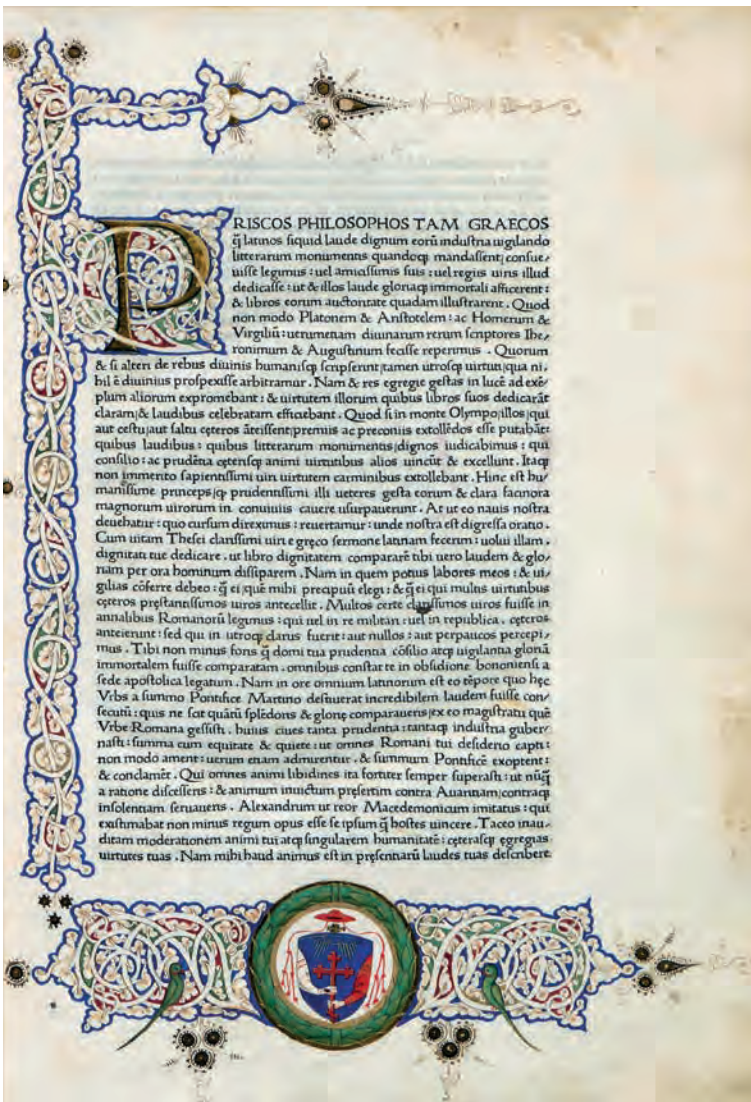 PRISCOS PHILOSOPHOS TAM GRAECOS
q̃ latinos siquid laude dignum eorū industria uigilando
litterarum monumentis quandoq; mandassent; consue/
uisse legimus : uel amicissimis suis : uel regiis uiris illud
dedicasse : ut & illos laude gloriaq; immortali afficerent :
& libros eorum auctoritate quadam illustrarent . Quod
non modo Platonem & Aristotelem : ac Homerum &
Virgiliū : uerumetiam diuinarum rerum scriptores Ihe/
ronimum & Augustinum fecisse reperimus . Quorum
& si alteri de rebus diuinis humanisq; scripserunt; tamen utrosq; uirtuti; qua ni/
hil ē diuinius prospexisse arbitramur . Nam & res egregie gestas in lucē ad exē/
plum aliorum expromebant : & uirtutem illorum quibus libros suos dedicarāt
claram; & laudibus celebratam efficiebant . Quod si in monte Olympo; illos; qui
aut cestu; aut saltu cęteros āteissent; premiis ac preconiis extollēdos esse putabāt:
quibus laudibus : quibus litterarum monumentis; dignos iudicabimus : qui
consilio : ac prudētia cęterisq; animi uirtutibus alios uincūt & excellunt . Itaq;
non immerito sapientissimi uiri uirtutem carminibus extollebant . Hinc est hu/
manissime princeps; q; prudentissimi illi ueteres gesta eorum & clara facinora
magnorum uirorum in conuiuiis canere usurpauerunt . At ut eo nauis nostra
deuehatur : quo cursum direximus : reuertamur : unde nostra est digressa oratio .
Cum uitam Thesei clarissimi uiri e gręco sermone latinam fecerim : uolui illam .
dignitati tue dedicare . ut libro dignitatem compararē tibi uero laudem & glo/
riam per ora hominum dissiparem . Nam in quem potius labores meos : & ui/
gilias cōferre debeo : q̃ ei; quē mihi precipuū elegi : & q̃ ei qui multis uirtutibus
cęteros pręstantissimos uiros antecellit . Multos certe clarissimos uiros fuisse in
annalibus Romanorū legimus : qui uel in re militari : uel in republica . cęteros
anteierint : sed qui in utroq; clarus fuerit : aut nullos : aut perpaucos percepi/
mus . Tibi non minus foris q̃ domi tua prudentia cōsilio atq; uigilantia gloriā
immortalem fuisse comparatam . omnibus constat te in obsidione bononiensi a
sede apostolica legatum . Nam in ore omnium latinorum est eo tēpore quo hęc
Vrbs a summo Pontifice Martino desciuerat incredibilem laudem fuisse con/
secutū : quis ne scit quātū splēdoris & glorię comparaueris; ex eo magistratu quē
Vrbe Romana gessisti . huius ciues tanta prudentia : tantaq; industria guber/
nasti : summa cum equitate & quiete : ut omnes Romani tui desiderio capti :
non modo ament : uerum etiam admirentur . & summum Pontificē exoptent :
& conclamēt . Qui omnes animi libidines ita fortiter semper superasti : ut nūq̃
a ratione discesseris : & animum inuictum pręsertim contra Auaritiam; contraq;
insolentiam seruaueris . Alexandrum ut reor Macedemonicum imitatus : qui
existimabat non minus regum opus esse se ipsum q̃ hostes uincere . Taceo inau/
ditam moderationem animi tui atq; singularem humanitatē : cęterasq; egregias
uirtutes tuas . Nam mihi haud animus est in pręsentiarū laudes tuas describere